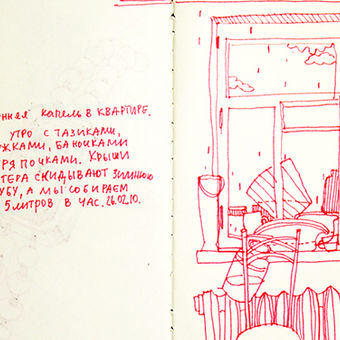 нняя капель в квартире.
Утро с тазиками,
жками, баночками
ряпочками. Крыши
тера скидывают зимнюю
убу, а мы собираем
5 литров в час. 26.02.10.